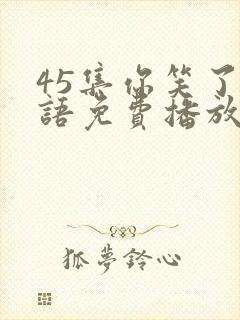 45集你笑了
語免費播放
狐夢鈴心